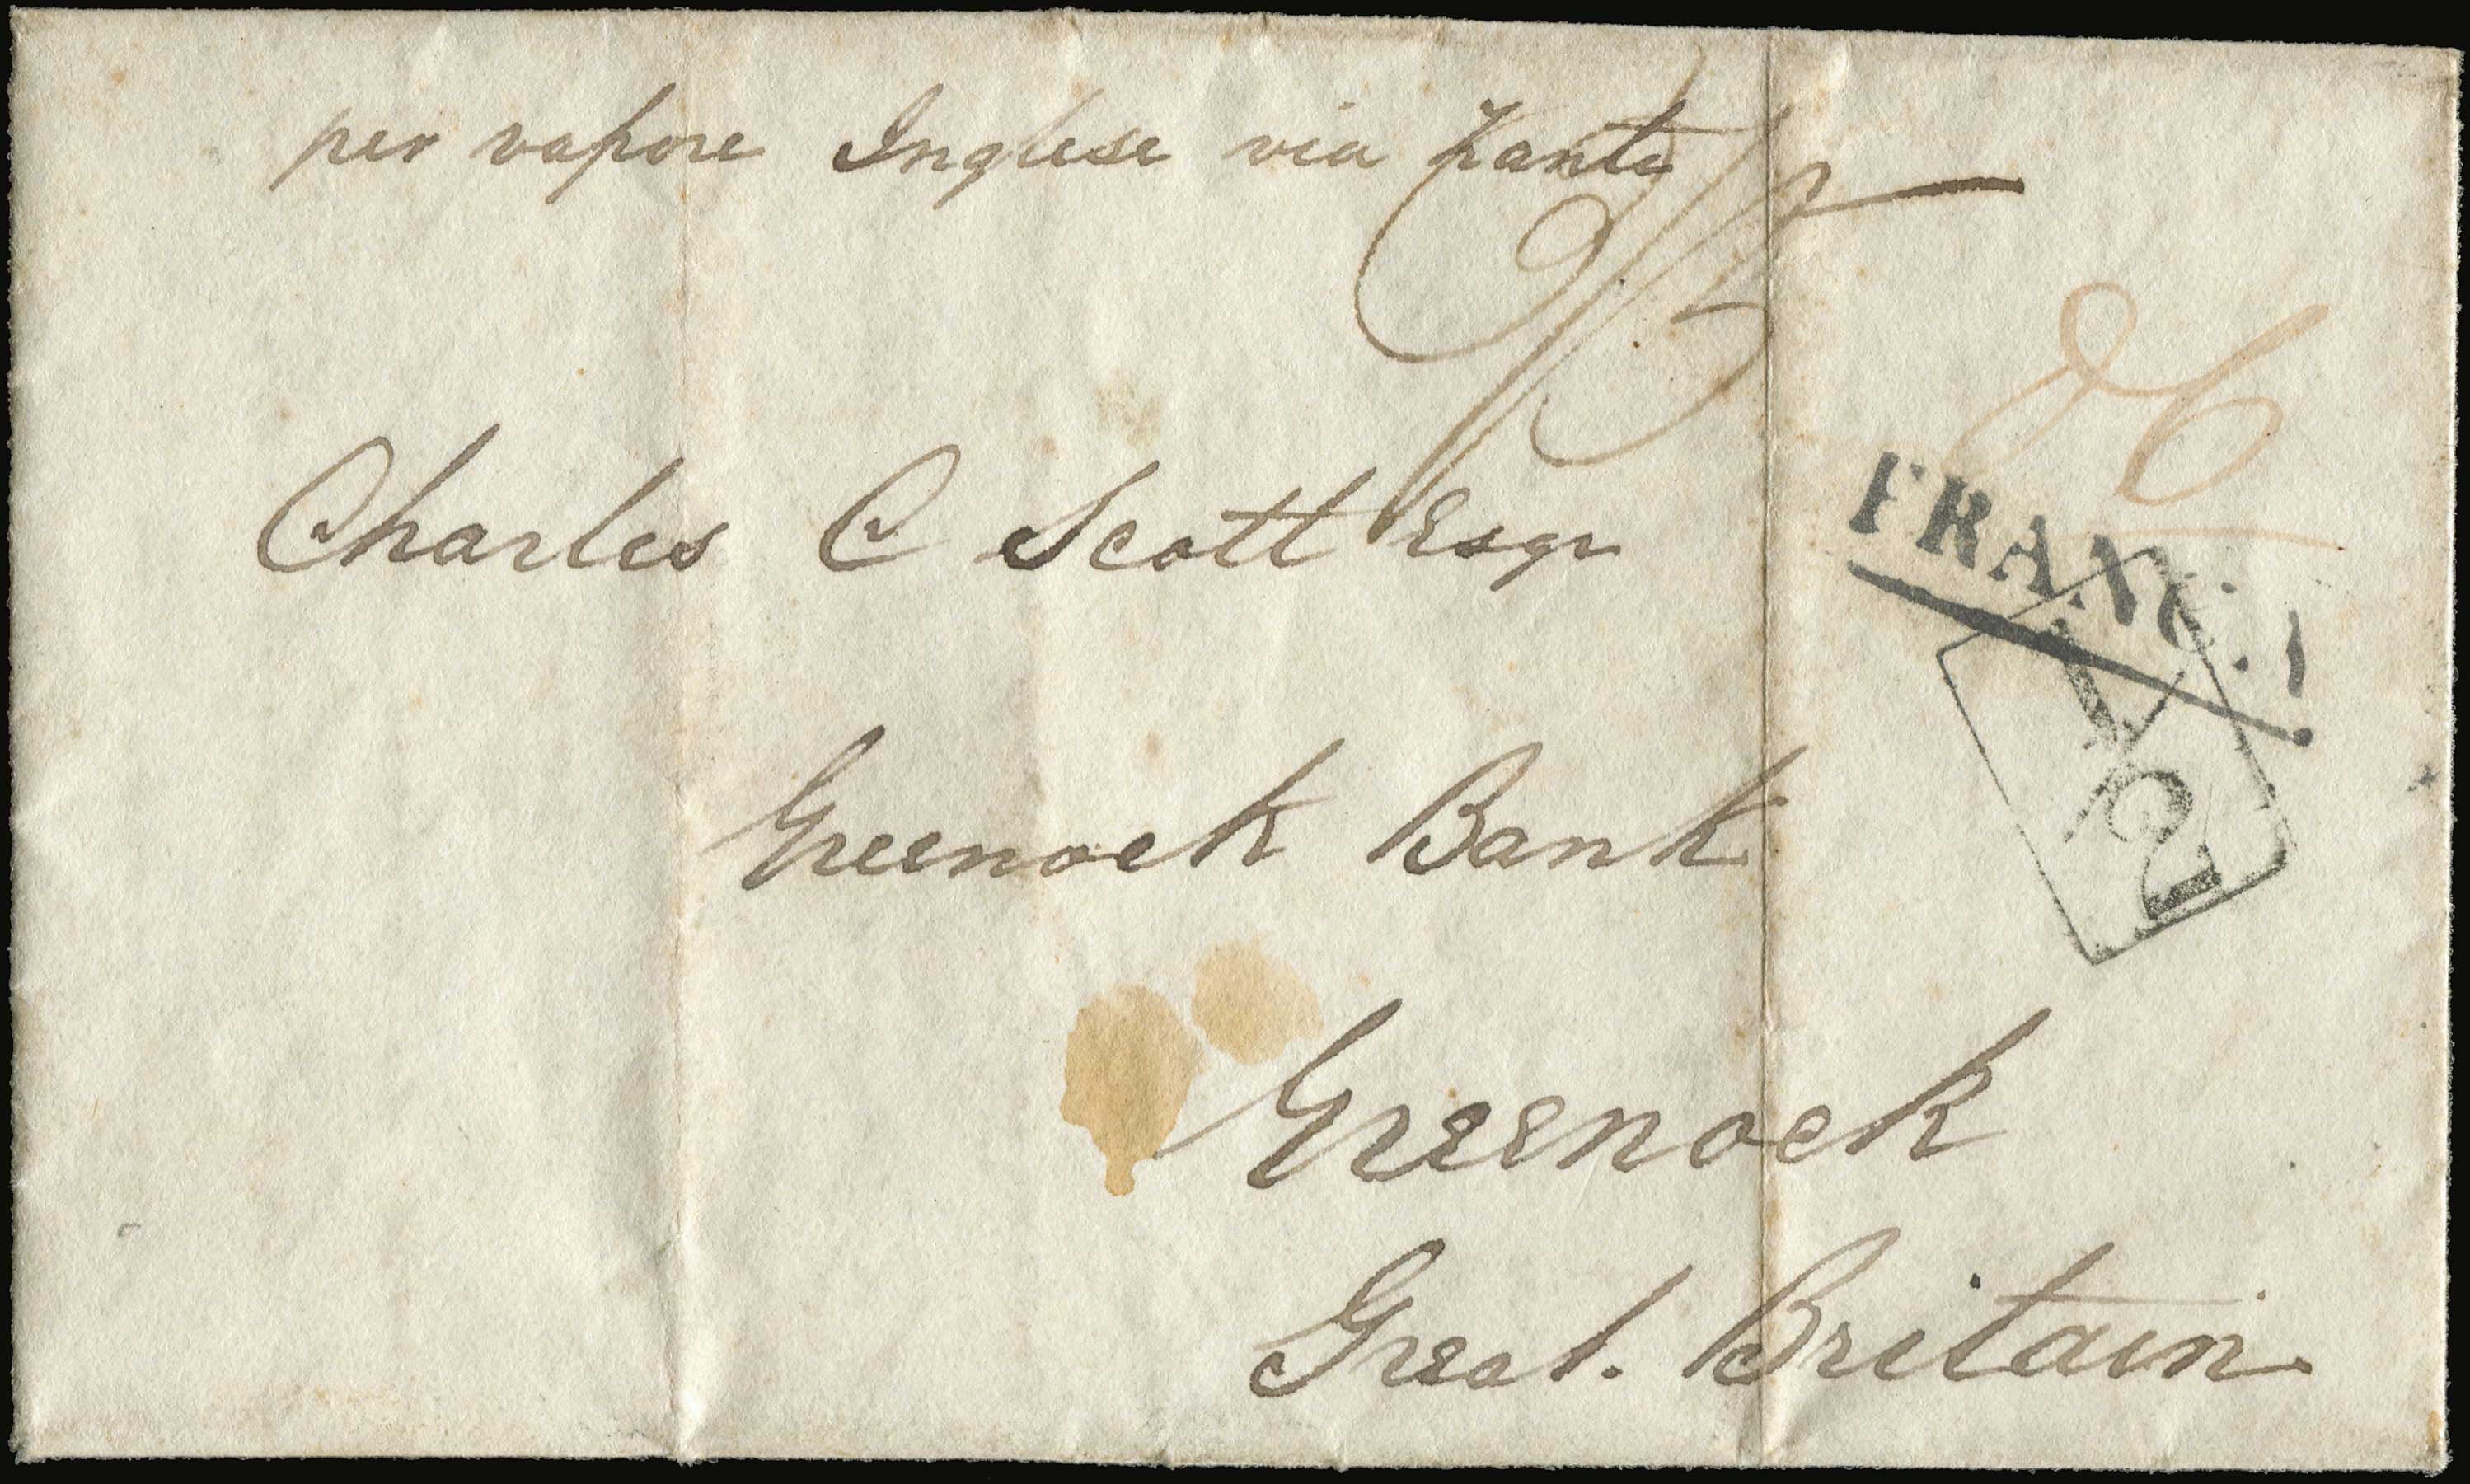 per vapore Inglese via Zante
Charles C Scott Esqr
Greenock Bank
Greenock
Great. Britain
1
2